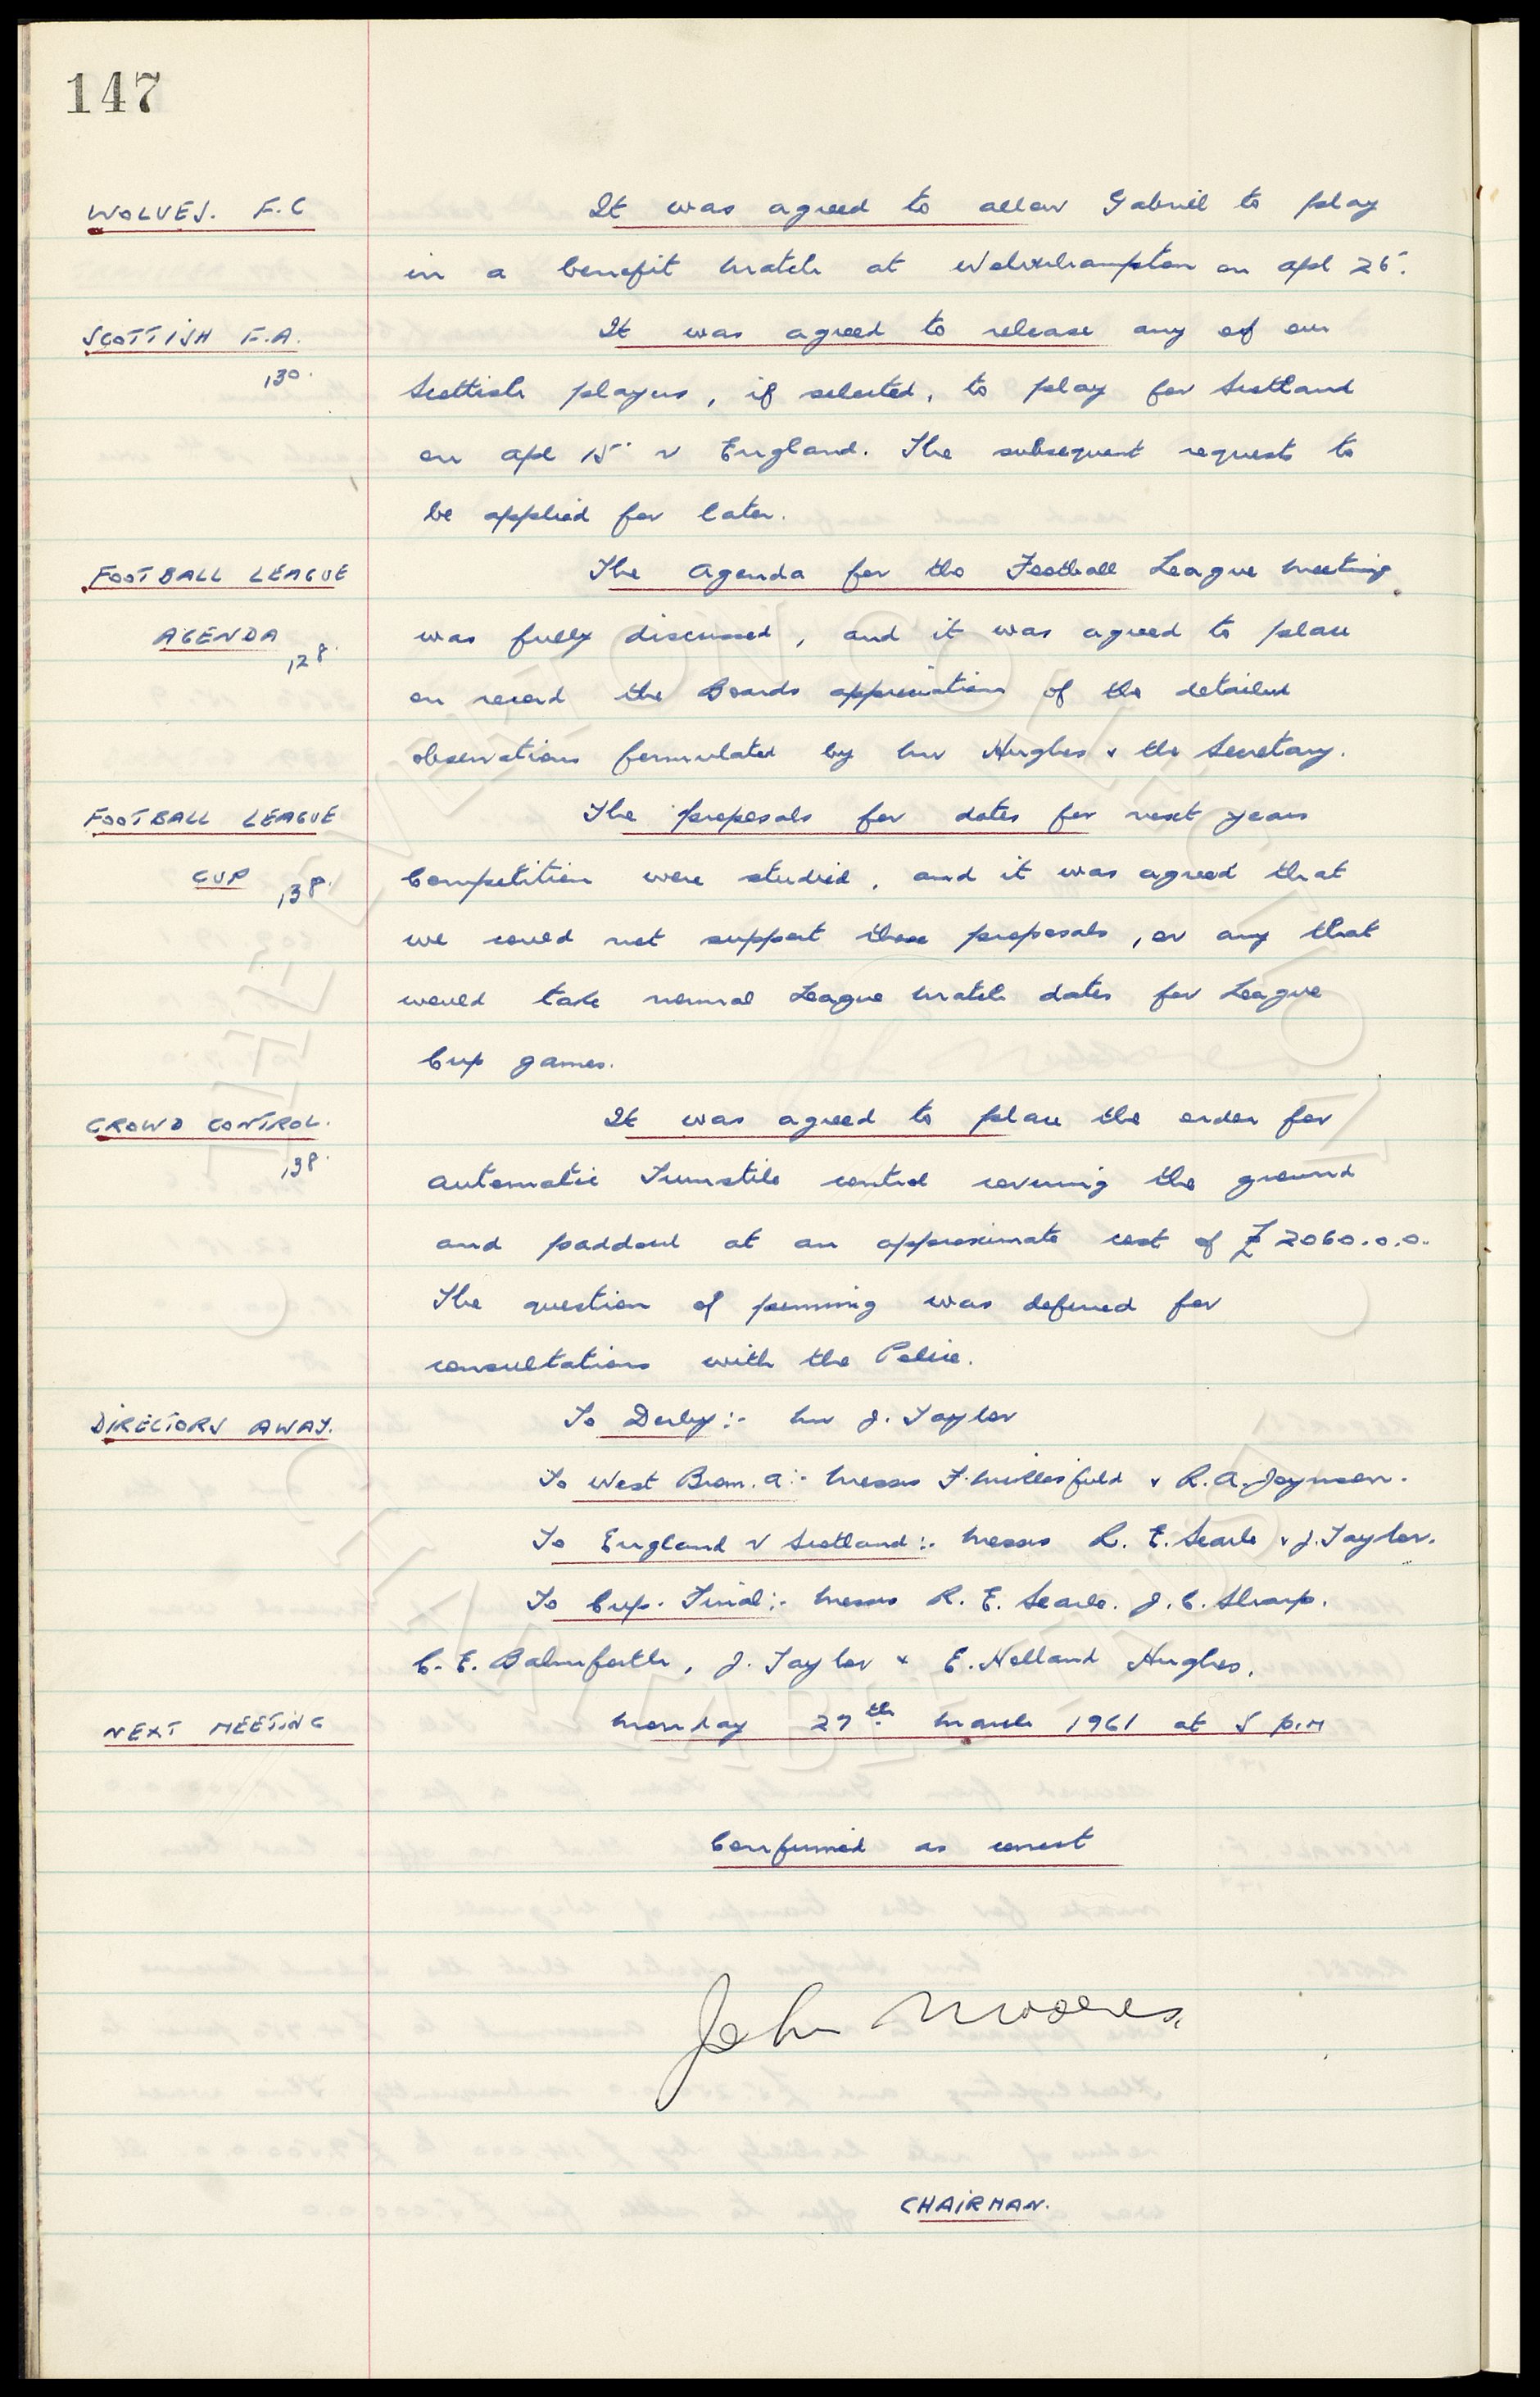 147
WOLVES. F.C It was agreed to allow Gabriel to play
in a benefit match at Wolverhampton on Apl 26.
SCOTTISH F.A. It was agreed to release any of our
130. Scottish players, if selected, to play for Scotland
on Apl 15 v England. The subsequent requests to
be applied for later.
FOOTBALL LEAGUE The Agenda for the Football League Meeting
AGENDA 128. was fully discussed, and it was agreed to place
on record the Boards appreciation of the detailed
observations formulated by Mr Hughes & the Secretary.
FOOTBALL LEAGUE The proposals for dates for next years
CUP 138. Competition were studied, and it was agreed that
we could not support these proposals, or any that
would take normal League Match dates for League
Cup games.
CROWD CONTROL. It was agreed to place the order for
138. automatic Turnstile control covering the ground
and paddock at an approximate cost of £2060.0.0.
The question of penning was deferred for
consultations with the Police.
DIRECTORS AWAY. To Derby:- Mr J. Taylor
To West Brom. A:- Messrs F. Micklesfield & R.A. Joynson.
To England v Scotland:- Messrs R. E. Searle & J. Taylor.
To Cup. Final:- Messrs R. E. Searle. J. C. Sharp.
C. E. Balmforth, J. Taylor & E. Holland Hughes.
NEXT MEETING Monday 27th March 1961 at 5 p.m
Confirmed as correct
John Moores.
CHAIRMAN.